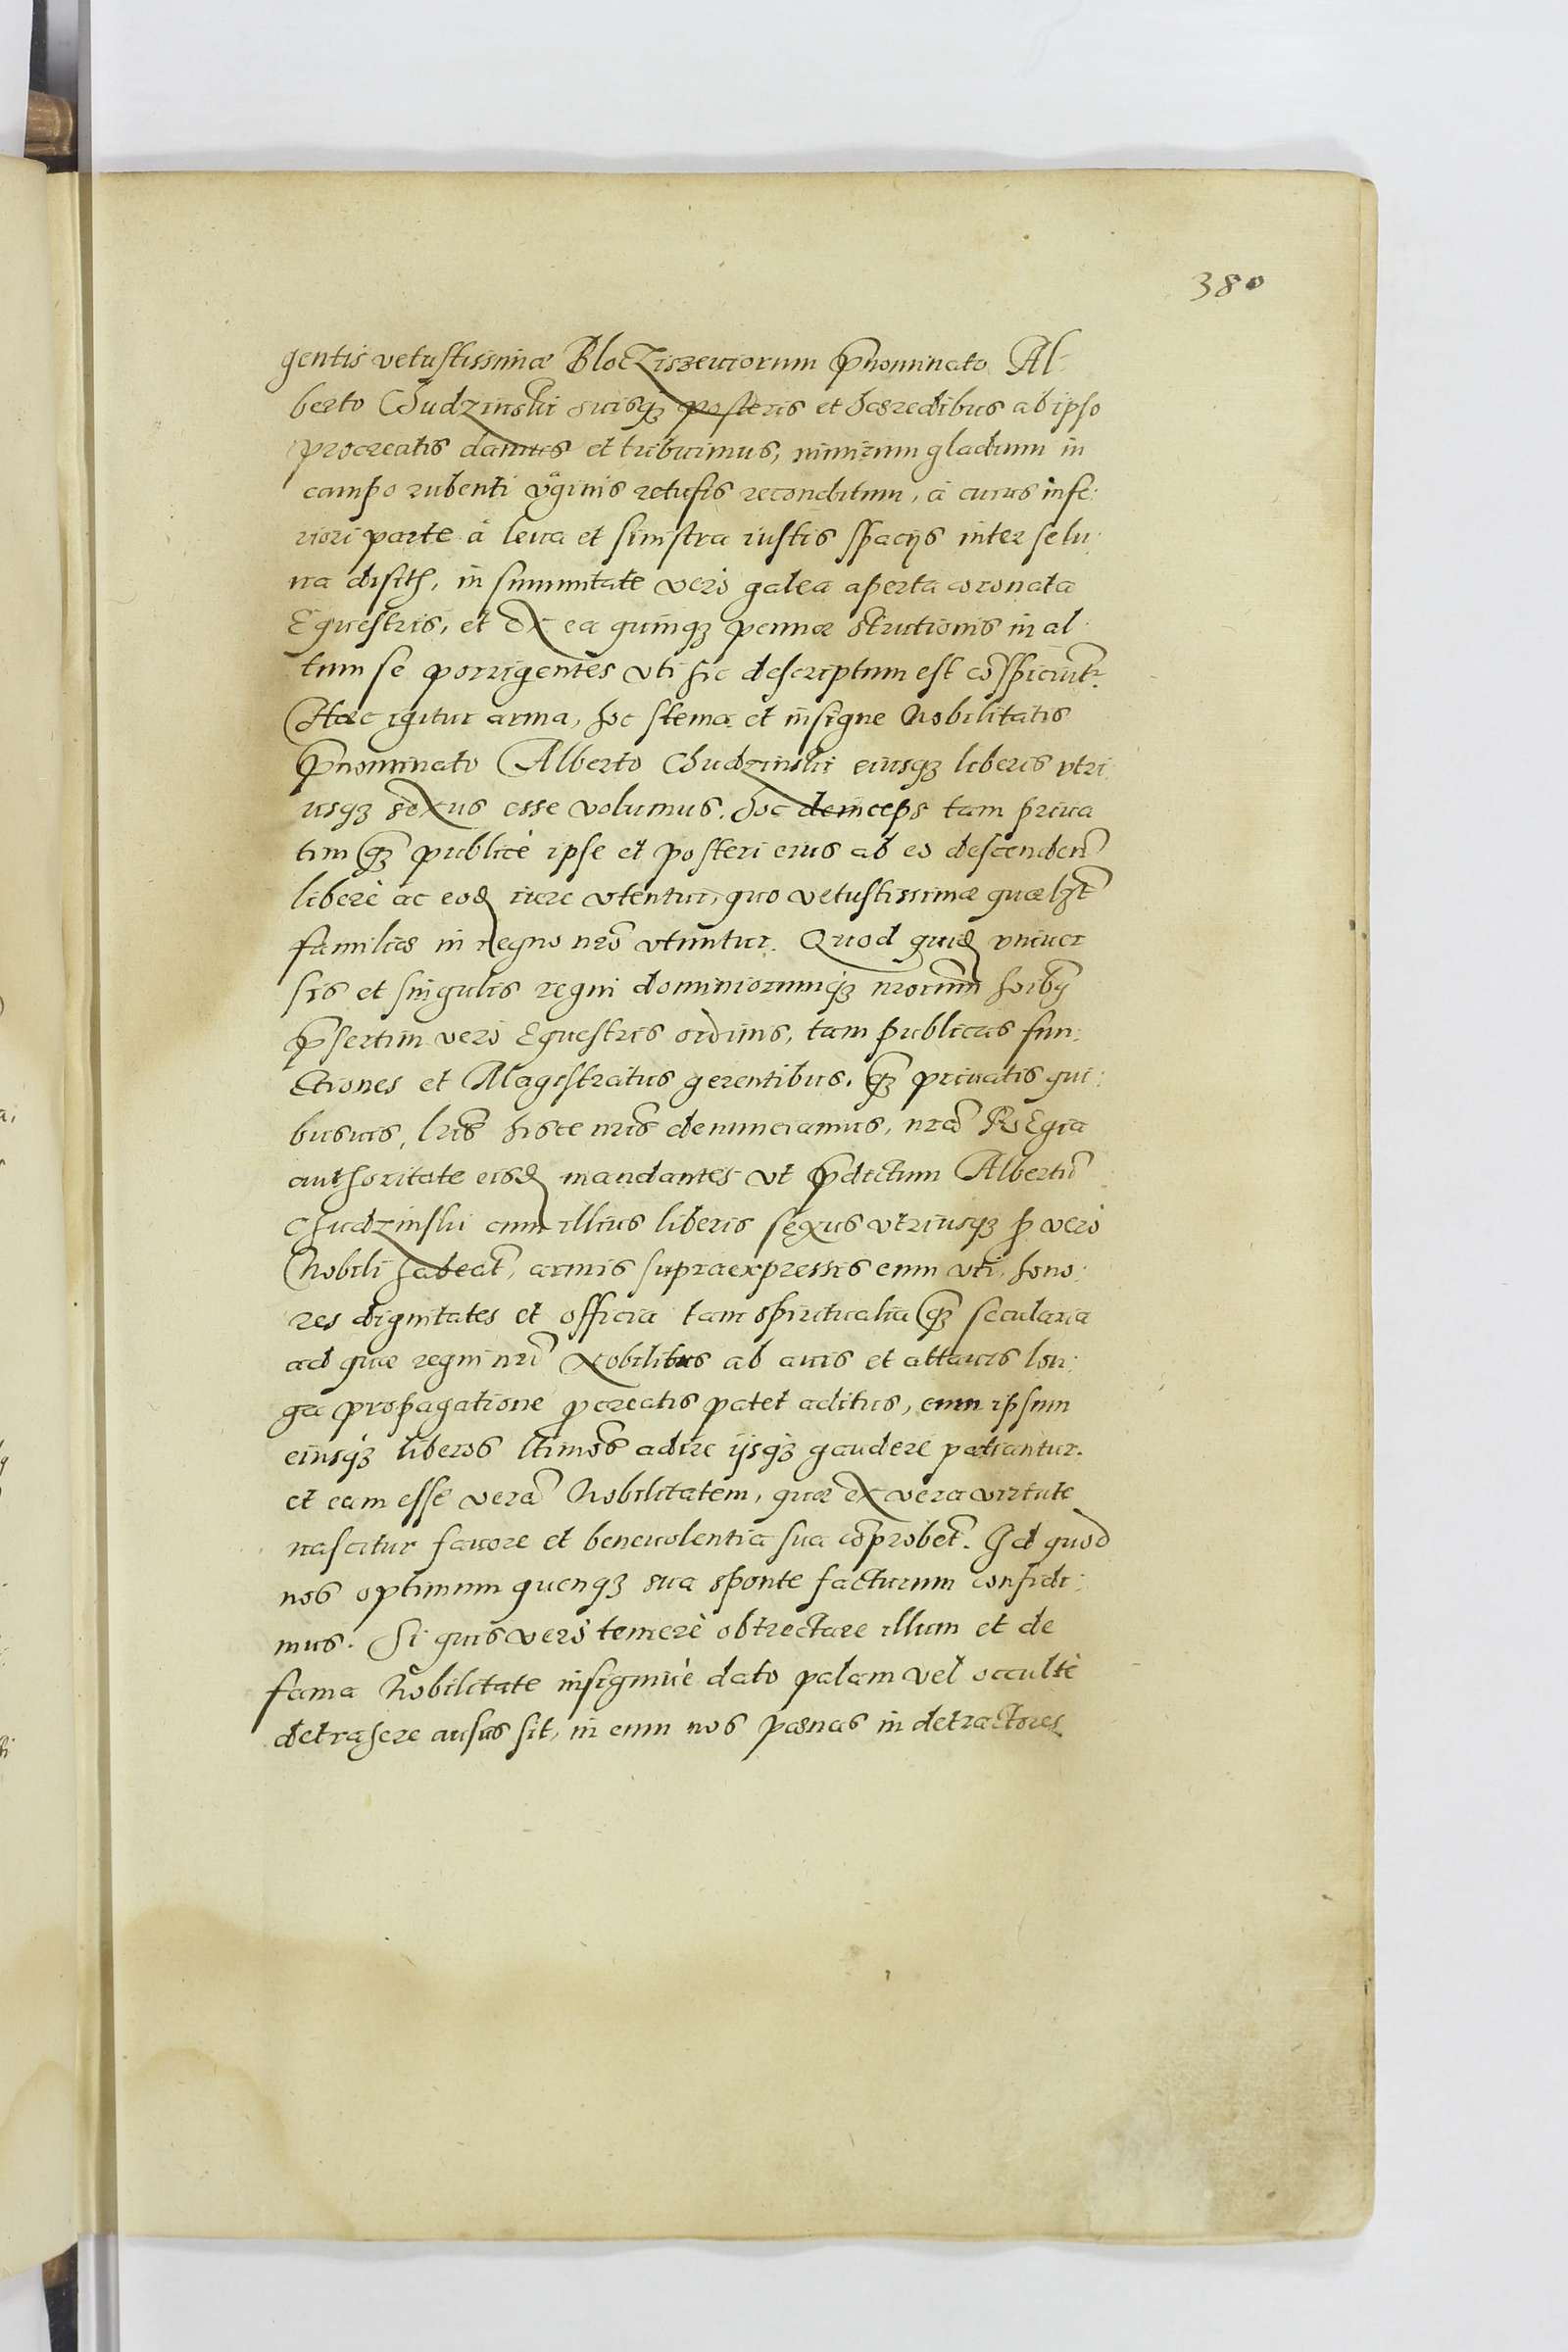 380
gentis vetustissimæ Blocziszewiorum p̃nominato Al-
berto Chudzinski suisq₃ posteris et hæredibus ab ipso
procreatis damus et tribuimus, nimirum gladium in
campo rubenti retusis reconditum, à cuius infe:
riori parte à leua et sinistra iustis spacijs inter se lu:
na in summitate verò galea aperta coronata
Equestris, et ex ea quinq₃ pennæ strutionis in al:
tum se porrigentes vti hic descriptum est cõspiciunt̃.
Hæc igitur arma, hoc stema et insigne Nobilitatis
p̃nominato Alberto Chudzinski eiusq₃ liberis vtri:
usq₃ sexus esse volumus. hoc deinceps tam priua
tim q̃₃ publicè ipse et posteri eius ab eo descenden̄
liberè ac eod̃ iure vtentur, quo vetustissimæ quælꝫt
familiæ in regno nr̃o vtuntur. Quod quid̃ vniuer
sis et singulis regni dominiorumq₃ nrorum̃ hoib₉
p̃sertim verò Equestris ordinis, tam publicas fun:
ctiones et Magistratus gerentibus, q̃₃ priuatis qui:
busuis, lris̃ hisce nris̃ denunciamus, nrã REgia
authoritate eisd̃ mandantes vt p̃dictum Albertũ
Chudzinski cum illius liberis sexus vtriusq₃ p̱ verò
Nobili habeãt, armis supraexpressis eum vti, hono:
res dignitates et officia tam spiritualia q̃₃ secularia
ad quæ regni nrĩ Nobilibus ab auis et attauis lon:
ga propagatione ꝓcreatis patet aditus, eum ipsum
eiusq₃ liberos ltimõs adire ijsq₃ gaudere patiantur.
et eam esse verã Nobilitatem, quæ ex vera virtute
nascitur fauore et beneuolentia sua cõprobet̃. Id quod
nos optimum quenq₃ sua sponte facturum confidi:
mus. Si quis verò temerè obtrectare illum et de
fama Nobilitate insigniuè dato palam vel occultè
detrahere ausus sit, in eum nos pænas in detractores